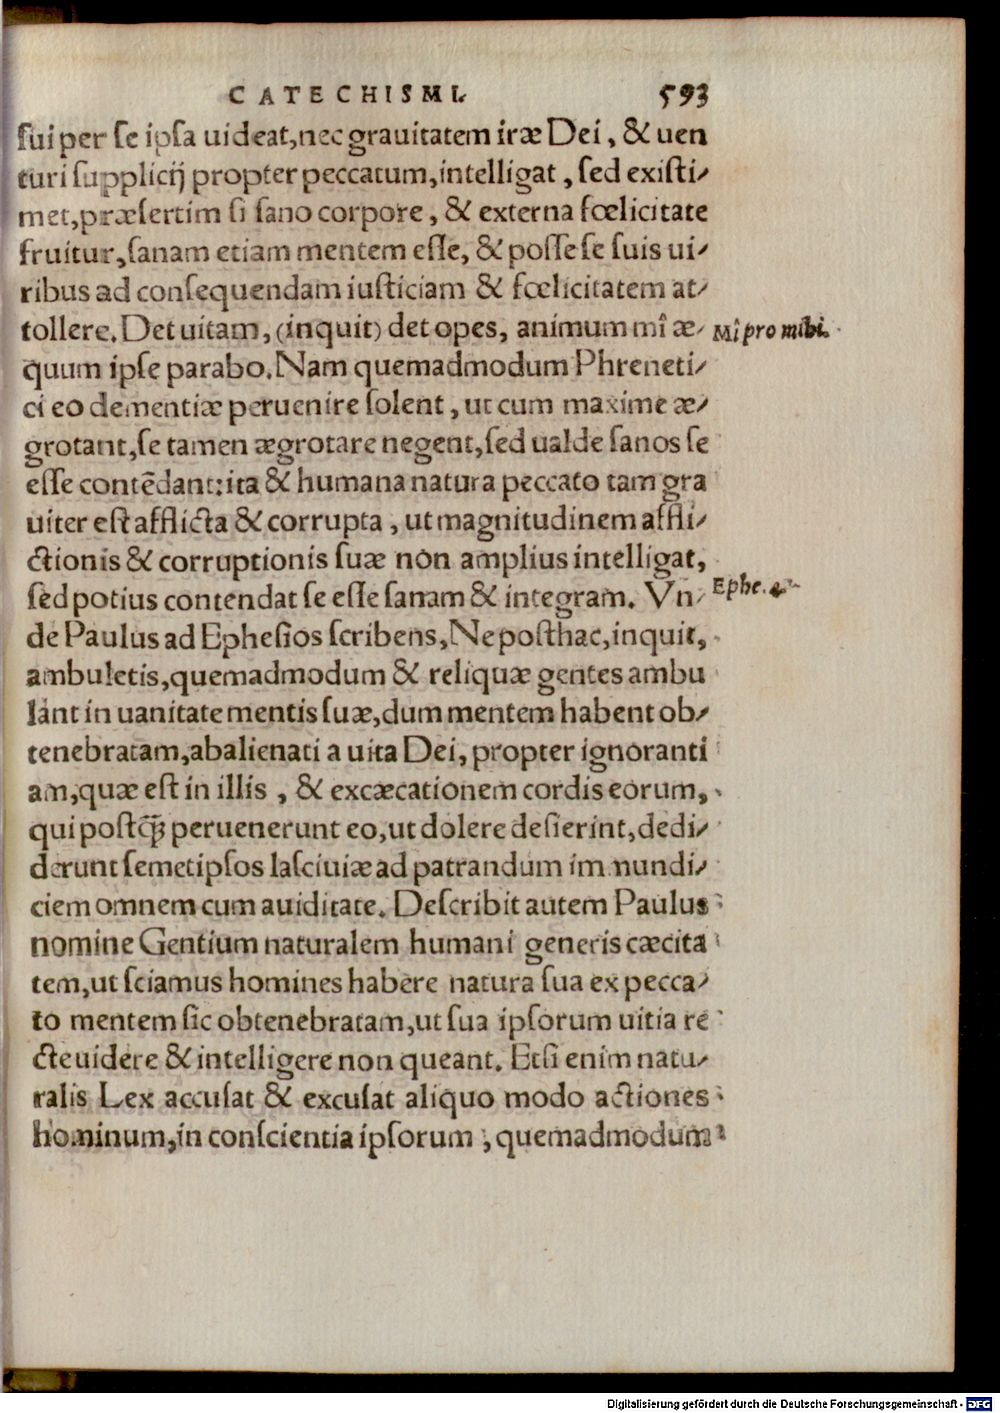 CATECHISMI. 593
sui per se ipsa uideat, nec grauitatem iræ Dei, & uen
turi supplicij propter peccatum, intelligat, sed existi-
met, præsertim si sano corpore, & externa fœlicitate
fruitur, sanam etiam mentem esse, & posse se suis ui-
ribus ad consequendam iusticiam & fœlicitatem at-
tollere. Det uitam, (inquit) det opes, animum mî æ- Mî pro mihi.
quum ipse parabo. Nam quemadmodum Phreneti-
ci eo dementiæ peruenire solent, ut cum maxime æ-
grotant, se tamen ægrotare negent, sed ualde sanos se
esse contēdant: ita & humana natura peccato tam gra
uiter est afflicta & corrupta, ut magnitudinem affli-
ctionis & corruptionis suæ non amplius intelligat,
sed potius contendat se esse sanam & integram. Vn- Ephe. 4.
de Paulus ad Ephesios scribens, Ne posthac, inquit,
ambuletis, quemadmodum & reliquæ gentes ambu
lant in uanitate mentis suæ, dum mentem habent ob-
tenebratam, abalienati a uita Dei, propter ignoranti
am, quæ est in illis, & excæcationem cordis eorum,
qui postꝙ̃ peruenerunt eo, ut dolere desierint, dedi-
derunt semetipsos lasciuiæ ad patrandum immundi-
ciem omnem cum auiditate. Describit autem Paulus
nomine Gentium naturalem humani generis cæcita
tem, ut sciamus homines habere natura sua ex pecca-
to mentem sic obtenebratam, ut sua ipsorum uitia re
cte uidere & intelligere non queant. Etsi enim natu-
ralis Lex accusat & excusat aliquo modo actiones
hominum, in conscientia ipsorum, quemadmodum
Digitalisierung gefördert durch die Deutsche Forschungsgemeinschaft - DFG